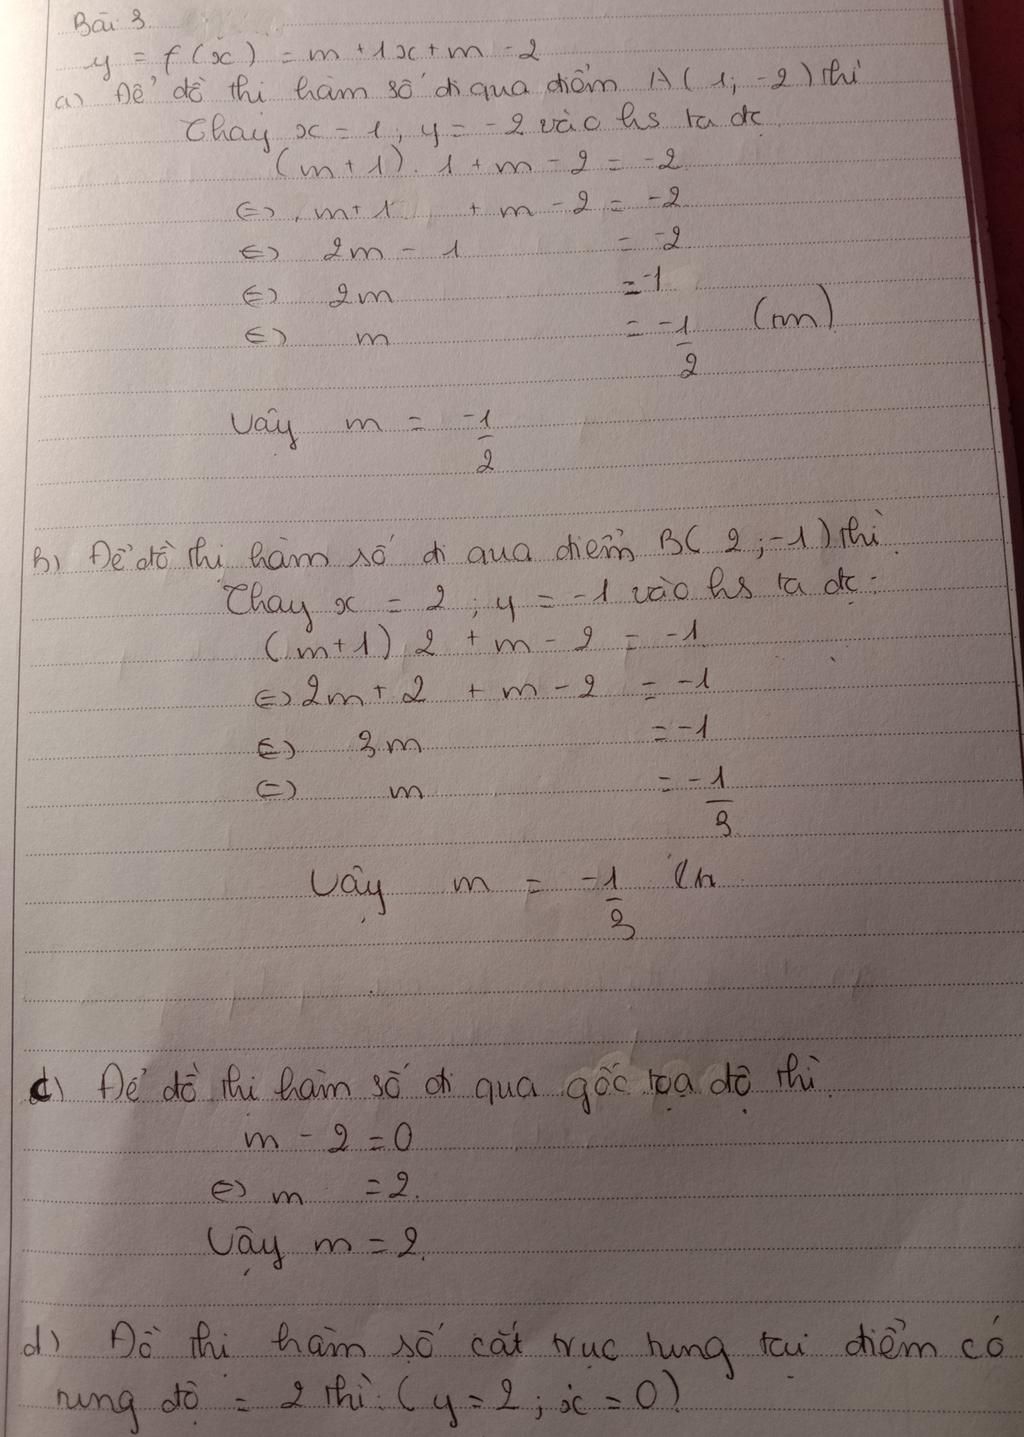 Bài 3
y = f(x) = m+1x+m-2
a) Để đồ thị hàm số đi qua điểm A(1; -2) thì
Thay x = 1, y = -2 vào hs ta đc
(m+1).1+m-2 = -2
⇔ m+1 + m - 2 = -2
⇔ 2m - 1 = -2
⇔ 2m = -1
⇔ m = -1/2 (tm)
Vậy m = -1/2
b) Để đồ thị hàm số đi qua điểm B(2;-1) thì
Thay x = 2; y = -1 vào hs ta đc:
(m+1)2 + m - 2 = -1
⇔ 2m+2 + m - 2 = -1
⇔ 3m = -1
⇔ m = -1/3
Vậy m = -1/3
c) Để đồ thị hàm số đi qua gốc tọa độ thì
m - 2 = 0
⇔ m = 2.
Vậy m = 2.
d) Đồ thị hàm số cắt trục tung tại điểm có
tung độ = 2 thì: (y=2; x=0)